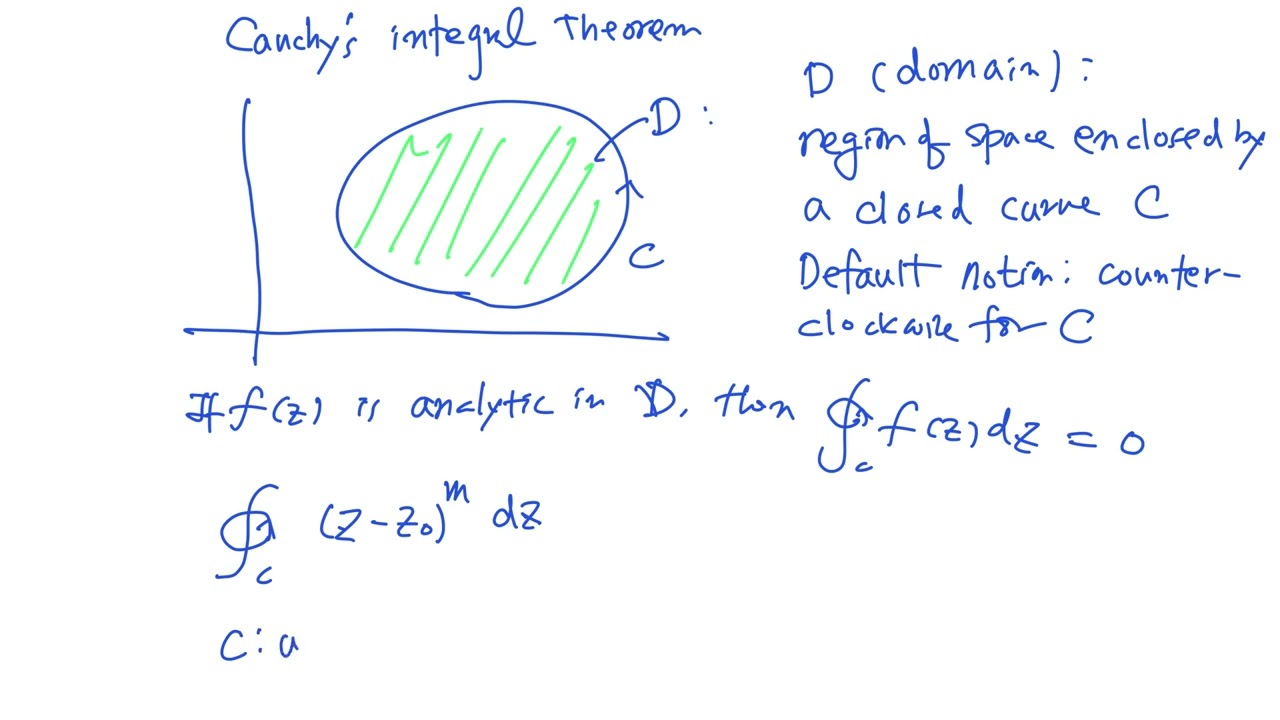 Cauchy's integral Theorem
D :
C
D (domain) :
region of space enclosed by
a closed curve C
Default notion: counter-
clockwise for C
If f(z) is analytic in D, then ∮_C f(z) dz = 0
∮_C (z-z₀)^m dz
C : a